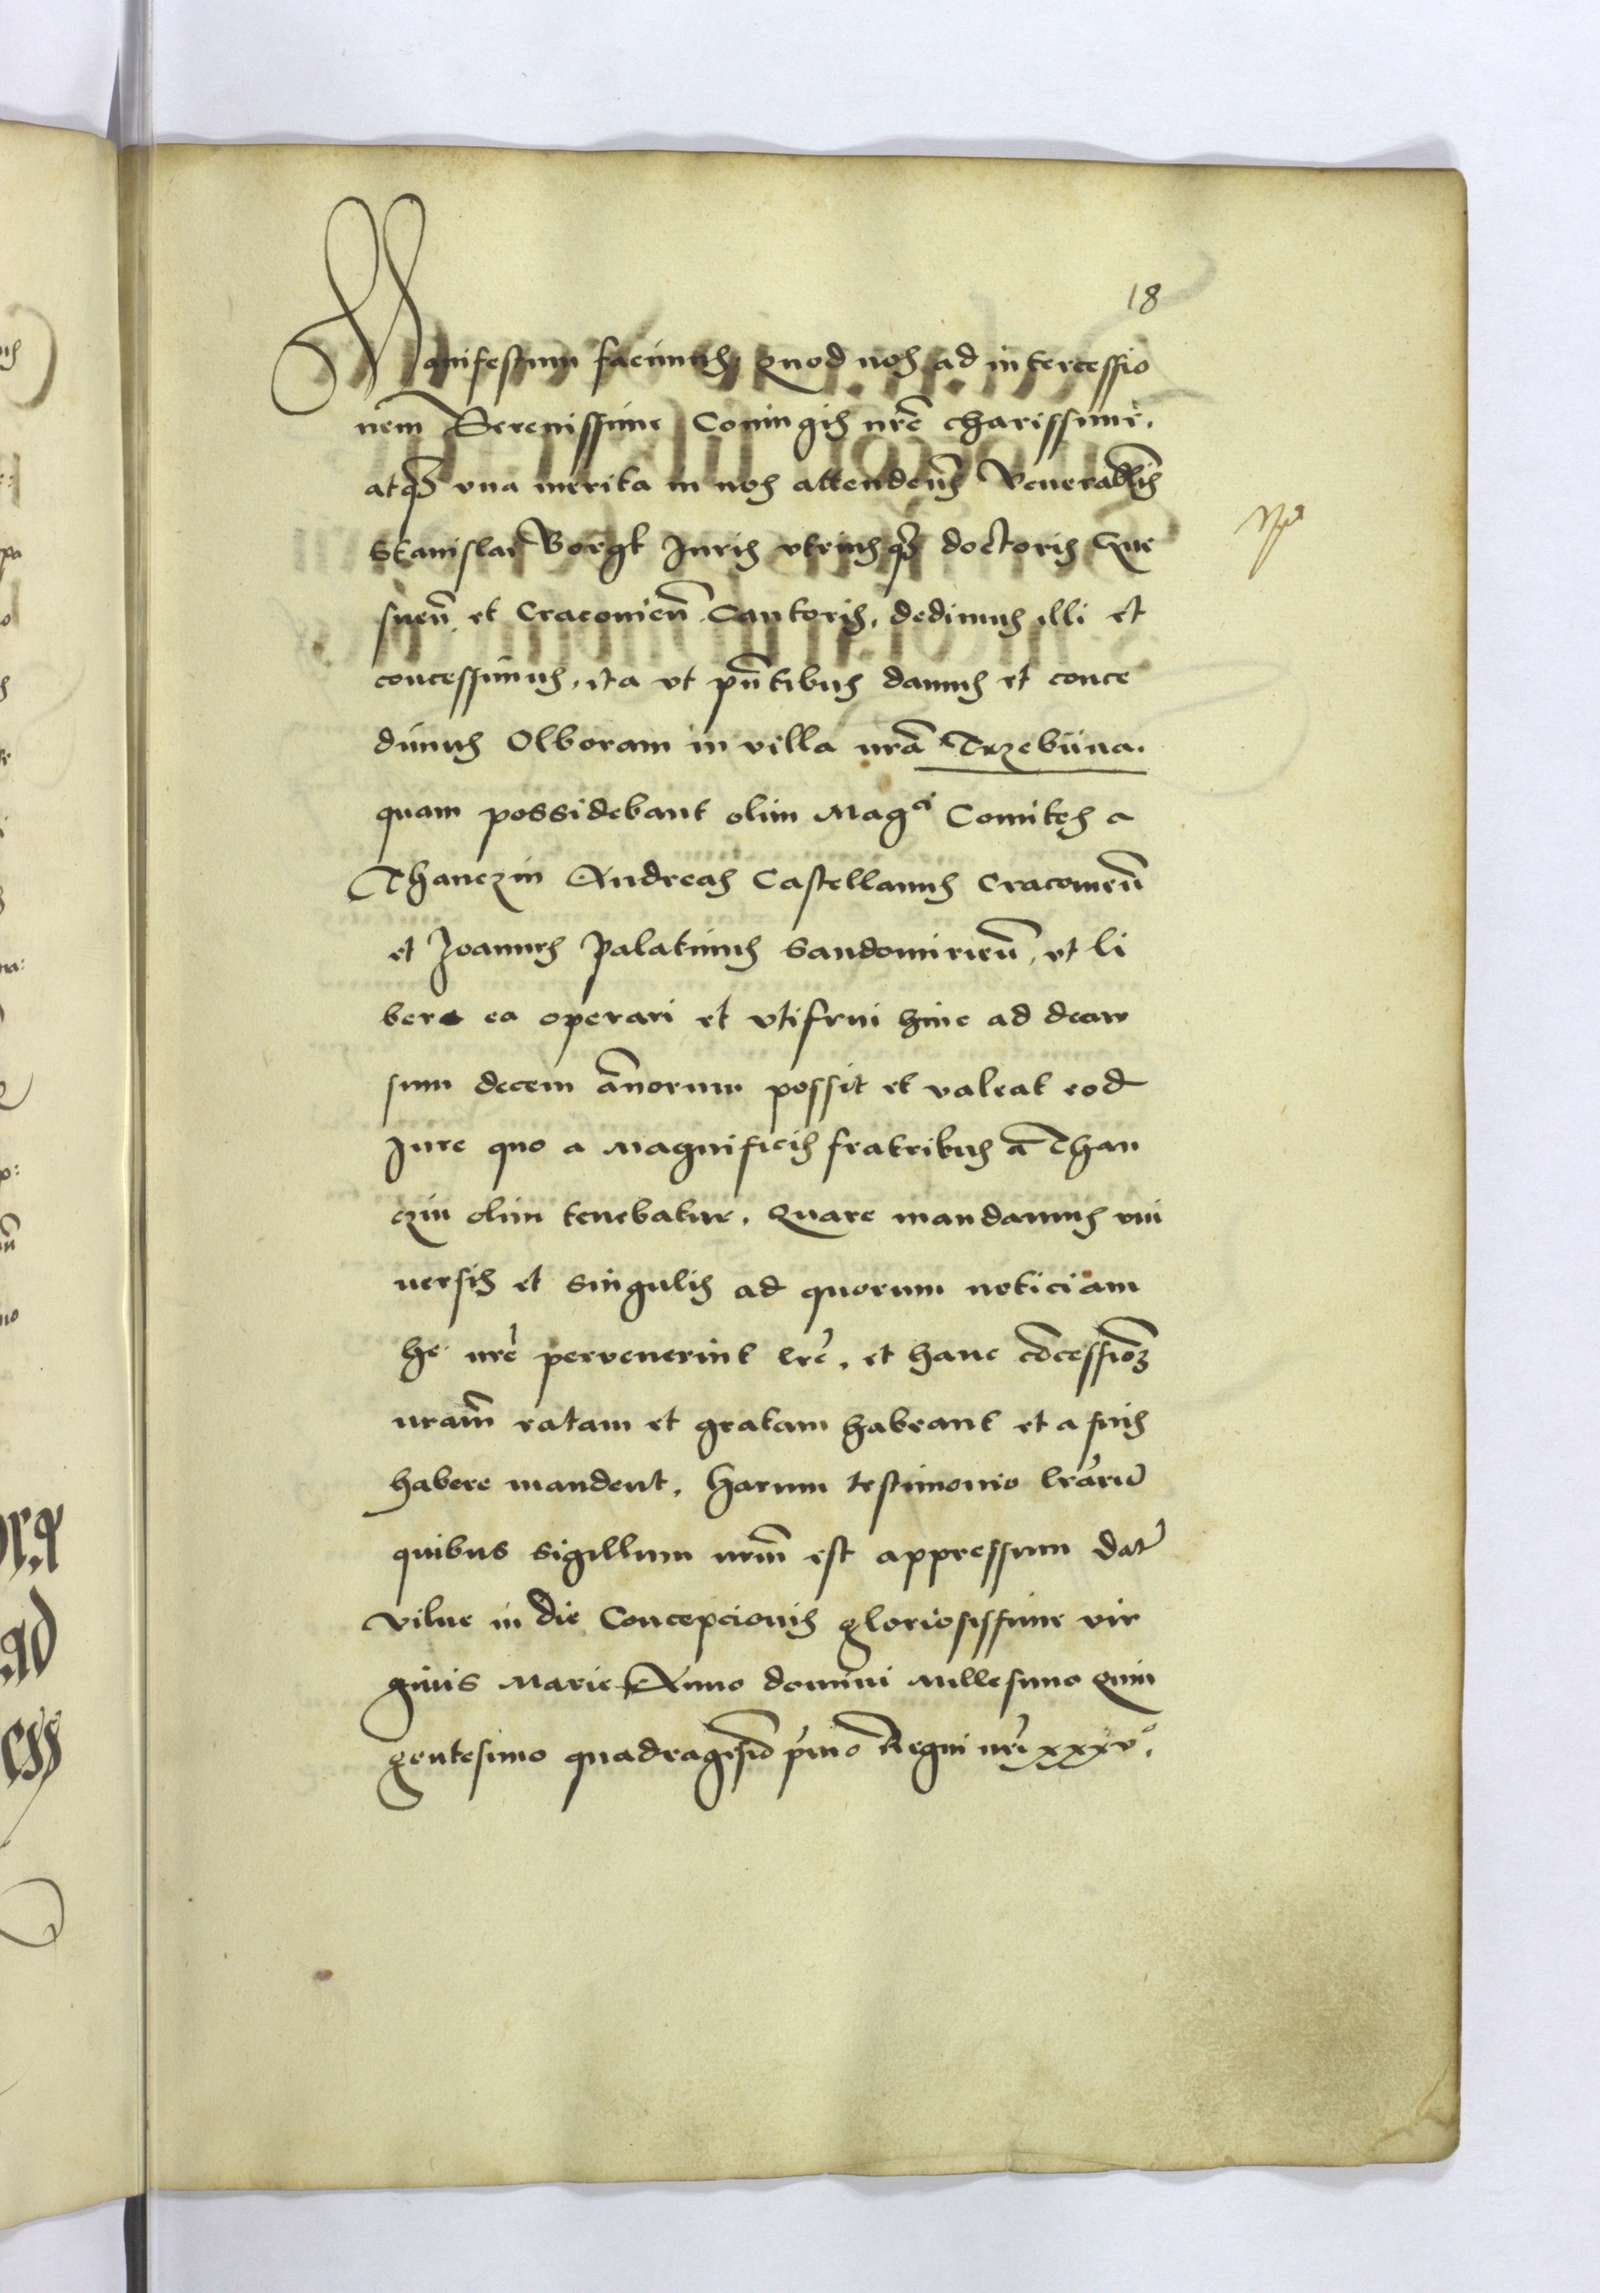 18
Manifestum facimus Quod nos ad intercessio
nem Serenissime Coniugis nr̃e charissime.
atqȝ vna merita in nos attendeñ Venerabilis
Stanislai Borgk Juris vtriusqȝ doctoris Gne
sneñ et Cracovieñ Cantoris, dedimus illi et
concessimus, ita vt pñtibus damus et conce
dimus Olboram in villa nrã Trzebiina.
quam possidebant olim Magci Comites a
Thanczin Andreas Castellanus Cracovieñ
et Joannes Palatinus Sandomirieñ, vt li
bere ea operari et vtifrui hinc ad decur
sum decem ãnorum possit et valeat eod̃
Jure quo a Magnificis fratribus a Than
czin olim tenebatur. Quare mandamus vni
uersis et singulis ad quorum noticiam
he nr̃e pervenerint lr̃e, et hanc cõcessioẽȝ
nram̃ ratam et gratam habeant et a suis
habere mandent. Harum testimonio lr̃arũ
quibus sigillum nrm̃ est appressum Dat̃
Vilne in die Concepcionis gloriosissime vir
ginis Marie Anno domini Millesimo Quin
gentesimo quadragesiõ p̃mo Regni nr̃i xxxvº.